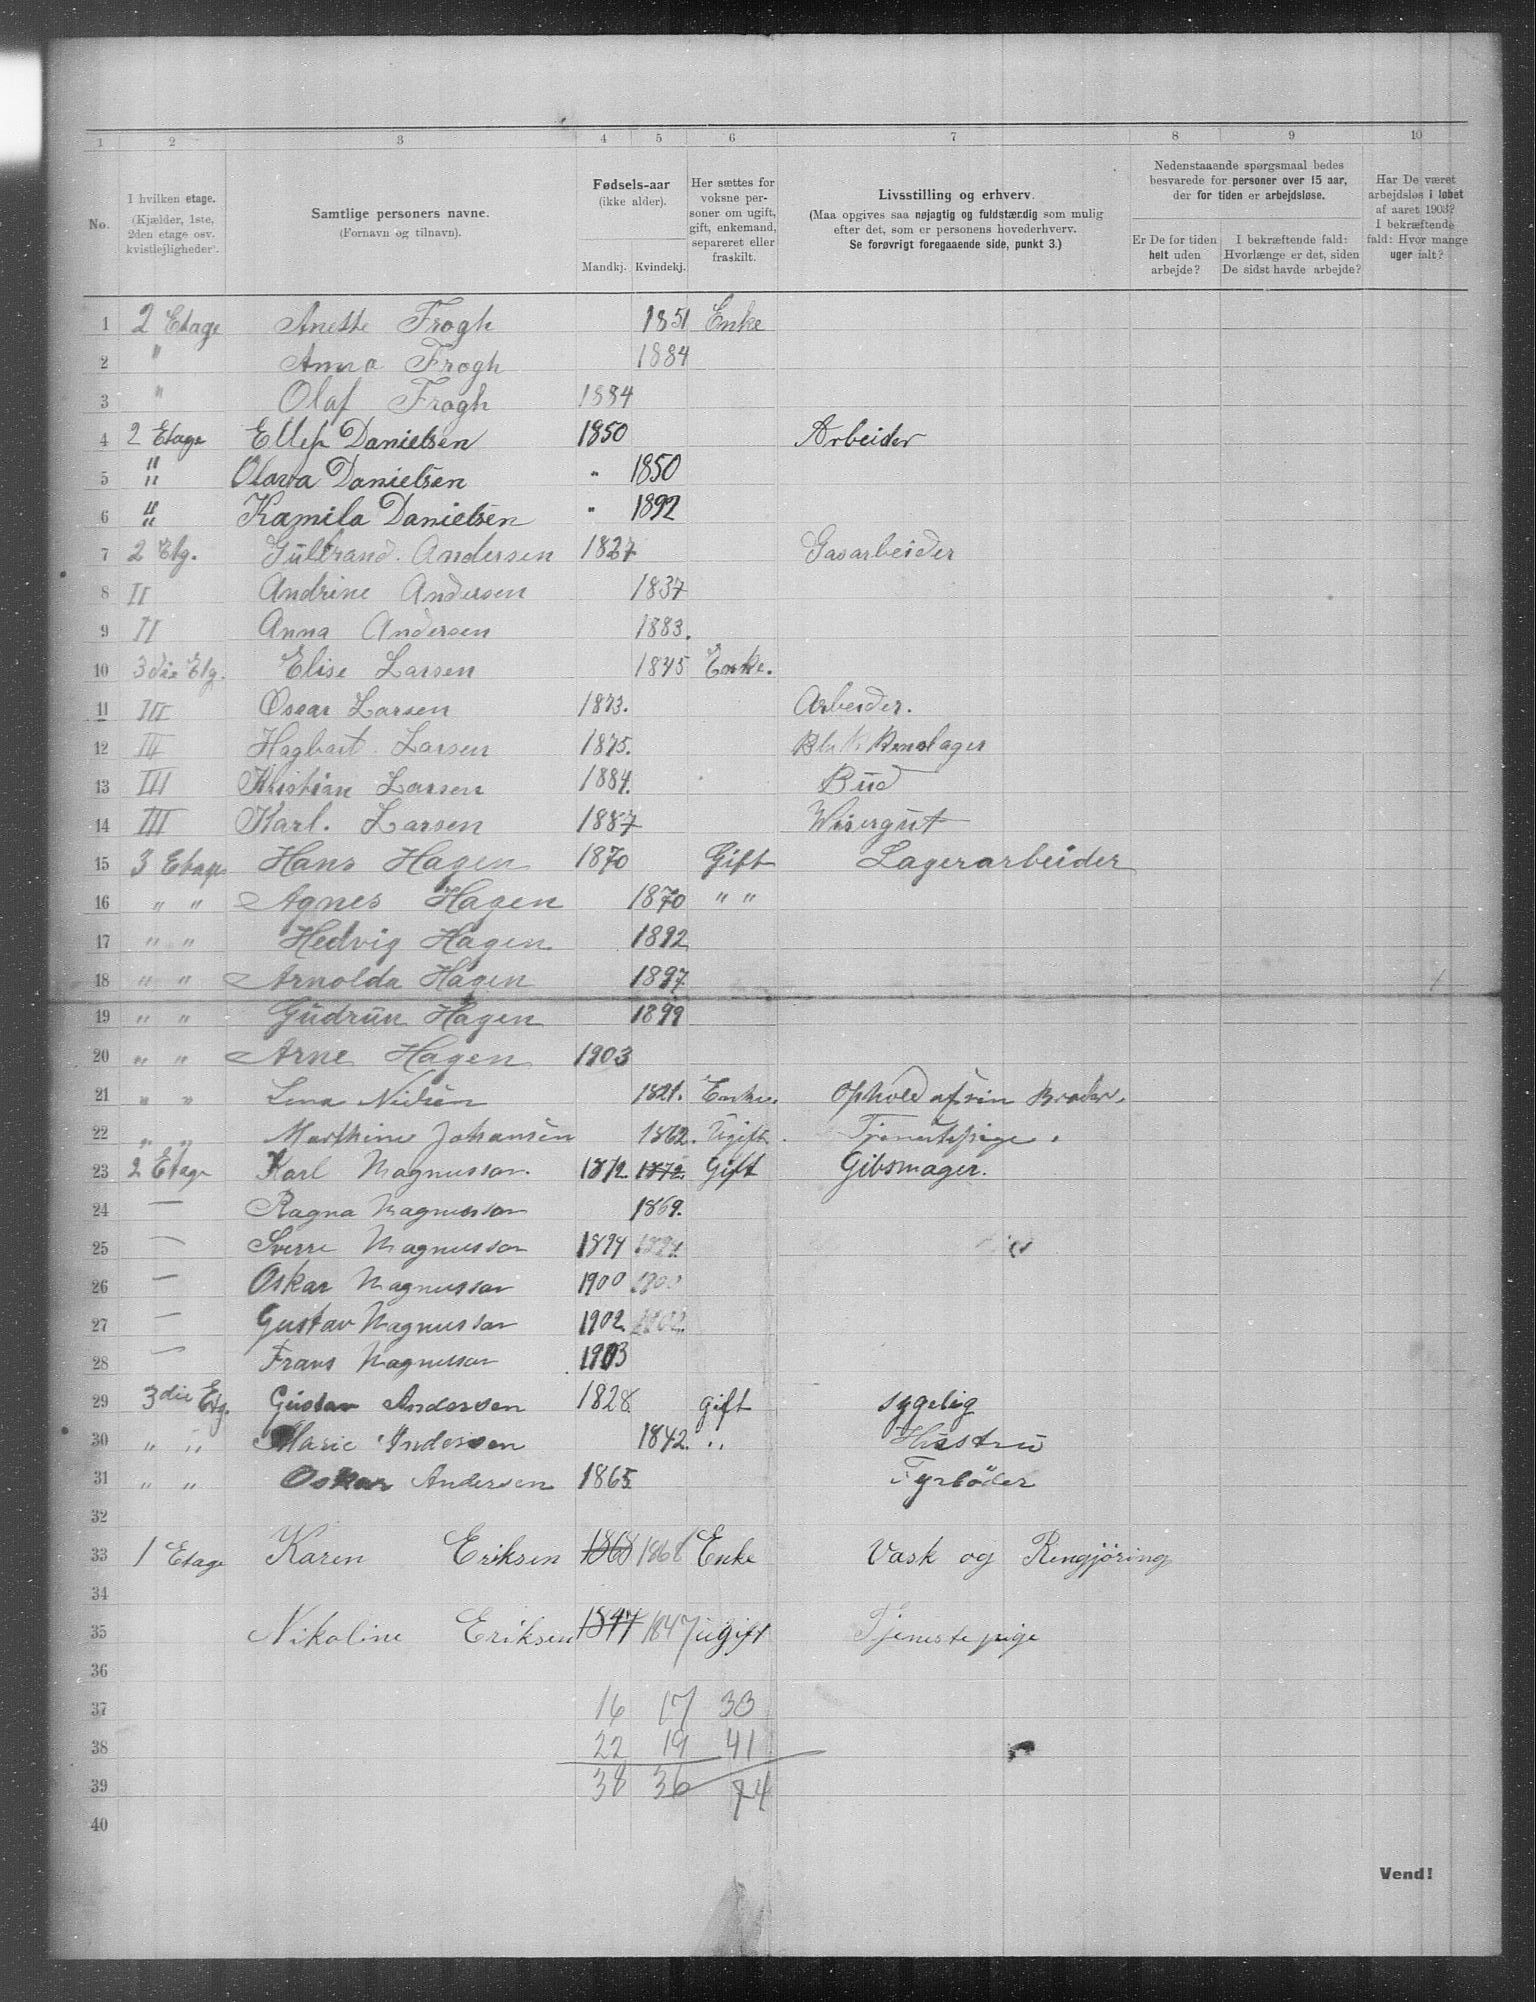 1 2 3 4 5 6 7 8 9 10
No.
I hvilken etage.
(Kjælder, 1ste,
2den etage osv.
kvistlejligheder).
Samtlige personers navne.
(Fornavn og tilnavn).
Fødsels-aar
(ikke alder).
Mandkj. Kvindekj.
Her sættes for
voksne per-
soner om ugift,
gift, enkemand,
separeret eller
fraskilt.
Livsstilling og erhverv.
(Maa opgives saa nøjagtig og fuldstærdig som mulig
efter det, som er personens hovederhverv.
Se forøvrigt foregaaende side, punkt 3.)
Nedenstaaende spørgsmaal bedes
besvarede for personer over 15 aar,
der for tiden er arbejdsløse.
Er De for tiden
helt uden
arbejde?
I bekræftende fald:
Hvorlænge er det, siden
De sidst havde arbejde?
Har De været
arbejdsløs i løbet
af aaret 1903?
I bekræftende
fald: Hvor mange
uger ialt?
1 2 Etage Anette Frogh 1851 Enke
2 " Anna Frogh 1884
3 " Olaf Frogh 1884
4 2 Etage Ellef Danielsen 1850 Arbeider
5 " Olava Danielsen " 1850
6 " Kamila Danielsen " 1892
7 2 Etg. Gulbrand. Andersen 1827 Gasarbeider
8 II Andrine Andersen 1837
9 II Anna Andersen 1883.
10 3die Etg. Elise Larsen 1845 Enke.
11 III Oscar Larsen 1873. Arbeider.
12 III Hagbart. Larsen 1875.
13 III Kristian Larsen 1884. Bud
14 III Karl. Larsen 1887 Wisergut
15 3 Etage Hans Hagen 1870 Gift Lagerarbeider
16 " " Agnes Hagen 1870 " "
17 " " Hedvig Hagen 1892
18 " " Arnolda Hagen 1897
19 " " Gudrun Hagen 1899
20 " " Arne Hagen 1903
21 " " Lena Nielsen 1821. Enke. Ophold af sin Broder.
22 " " Marthine Johansen 1862. Ugift. Tjenestepige.
23 2 Etage Karl Magnusson. 1872 1872 Gift Gibsmager.
24 — Ragna Magnusson 1869.
25 — Sverre Magnusson 1894 1894
26 — Oskar Magnusson 1900 1900
27 — Gustav Magnusson 1902 1902.
28 — Frans Magnusson 1903
29 3die Etg. Gustav Andersen 1828 gift sygelig
30 " " Marie Andersen 1842. " Hustru
31 " " Oskar Andersen 1865 Fyrbøder
32
33 1 Etage Karen Eriksen 1868 1868 Enke Vask og Rengjöring
34
35 Nikoline Eriksen 1847 1847 ugift Tjenestepige
36
37 16 17 33
38 22 19 41
39 38 36 74
40
Vend!